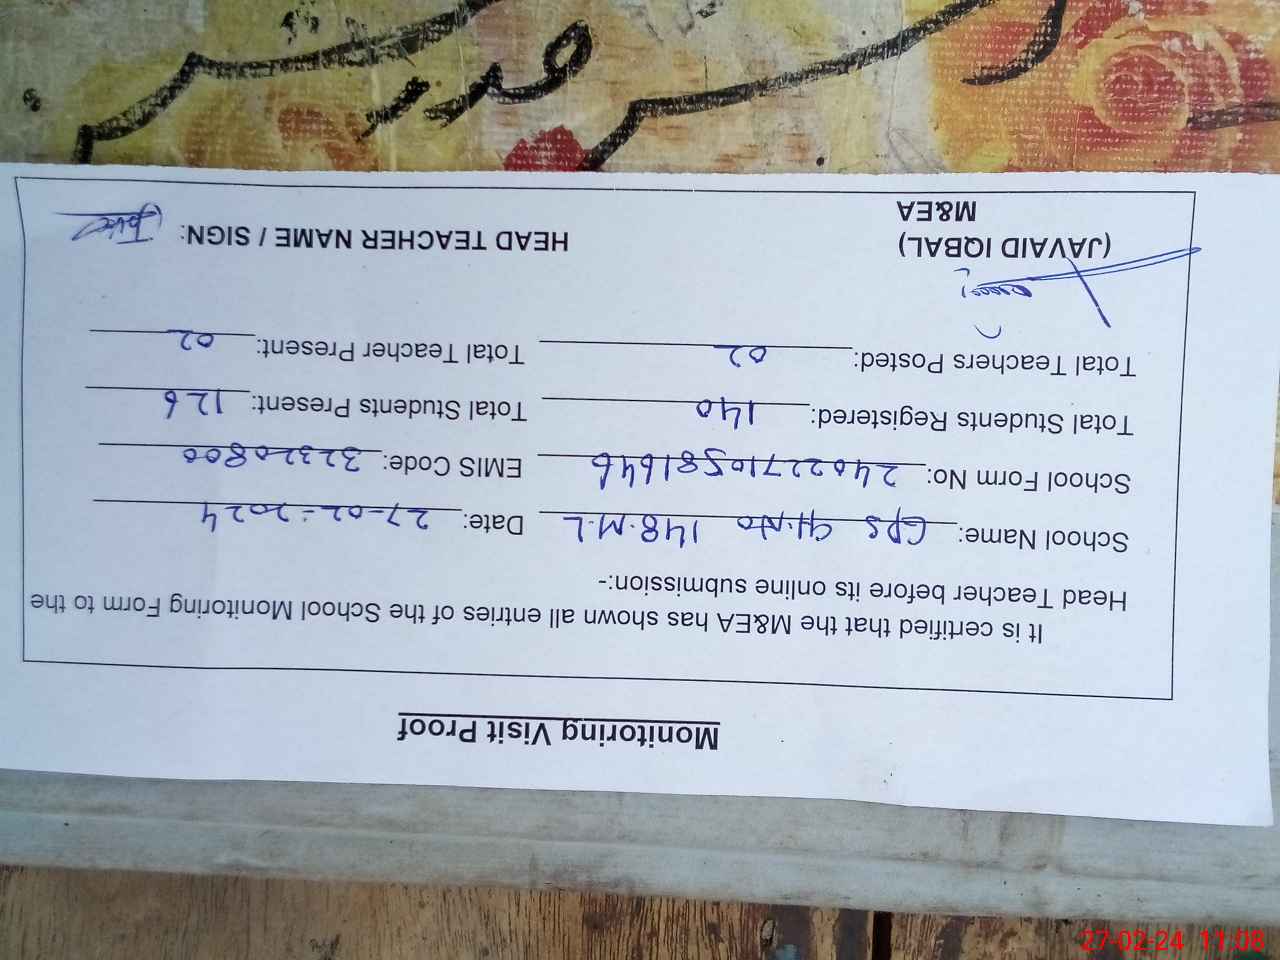 Monitoring Visit Proof
It is certified that the M&EA has shown all entries of the School Monitoring Form to the
Head Teacher before its online submission:-
School Name: GPS CH.No 148.M.L Date: 27-02-2024
School Form No: 24022710581646 EMIS Code: 32320800
Total Students Registered: 140 Total Students Present: 126
Total Teachers Posted: 02 Total Teacher Present: 02
(JAVAID IQBAL) HEAD TEACHER NAME / SIGN:
M&EA
27-02-24 11:08